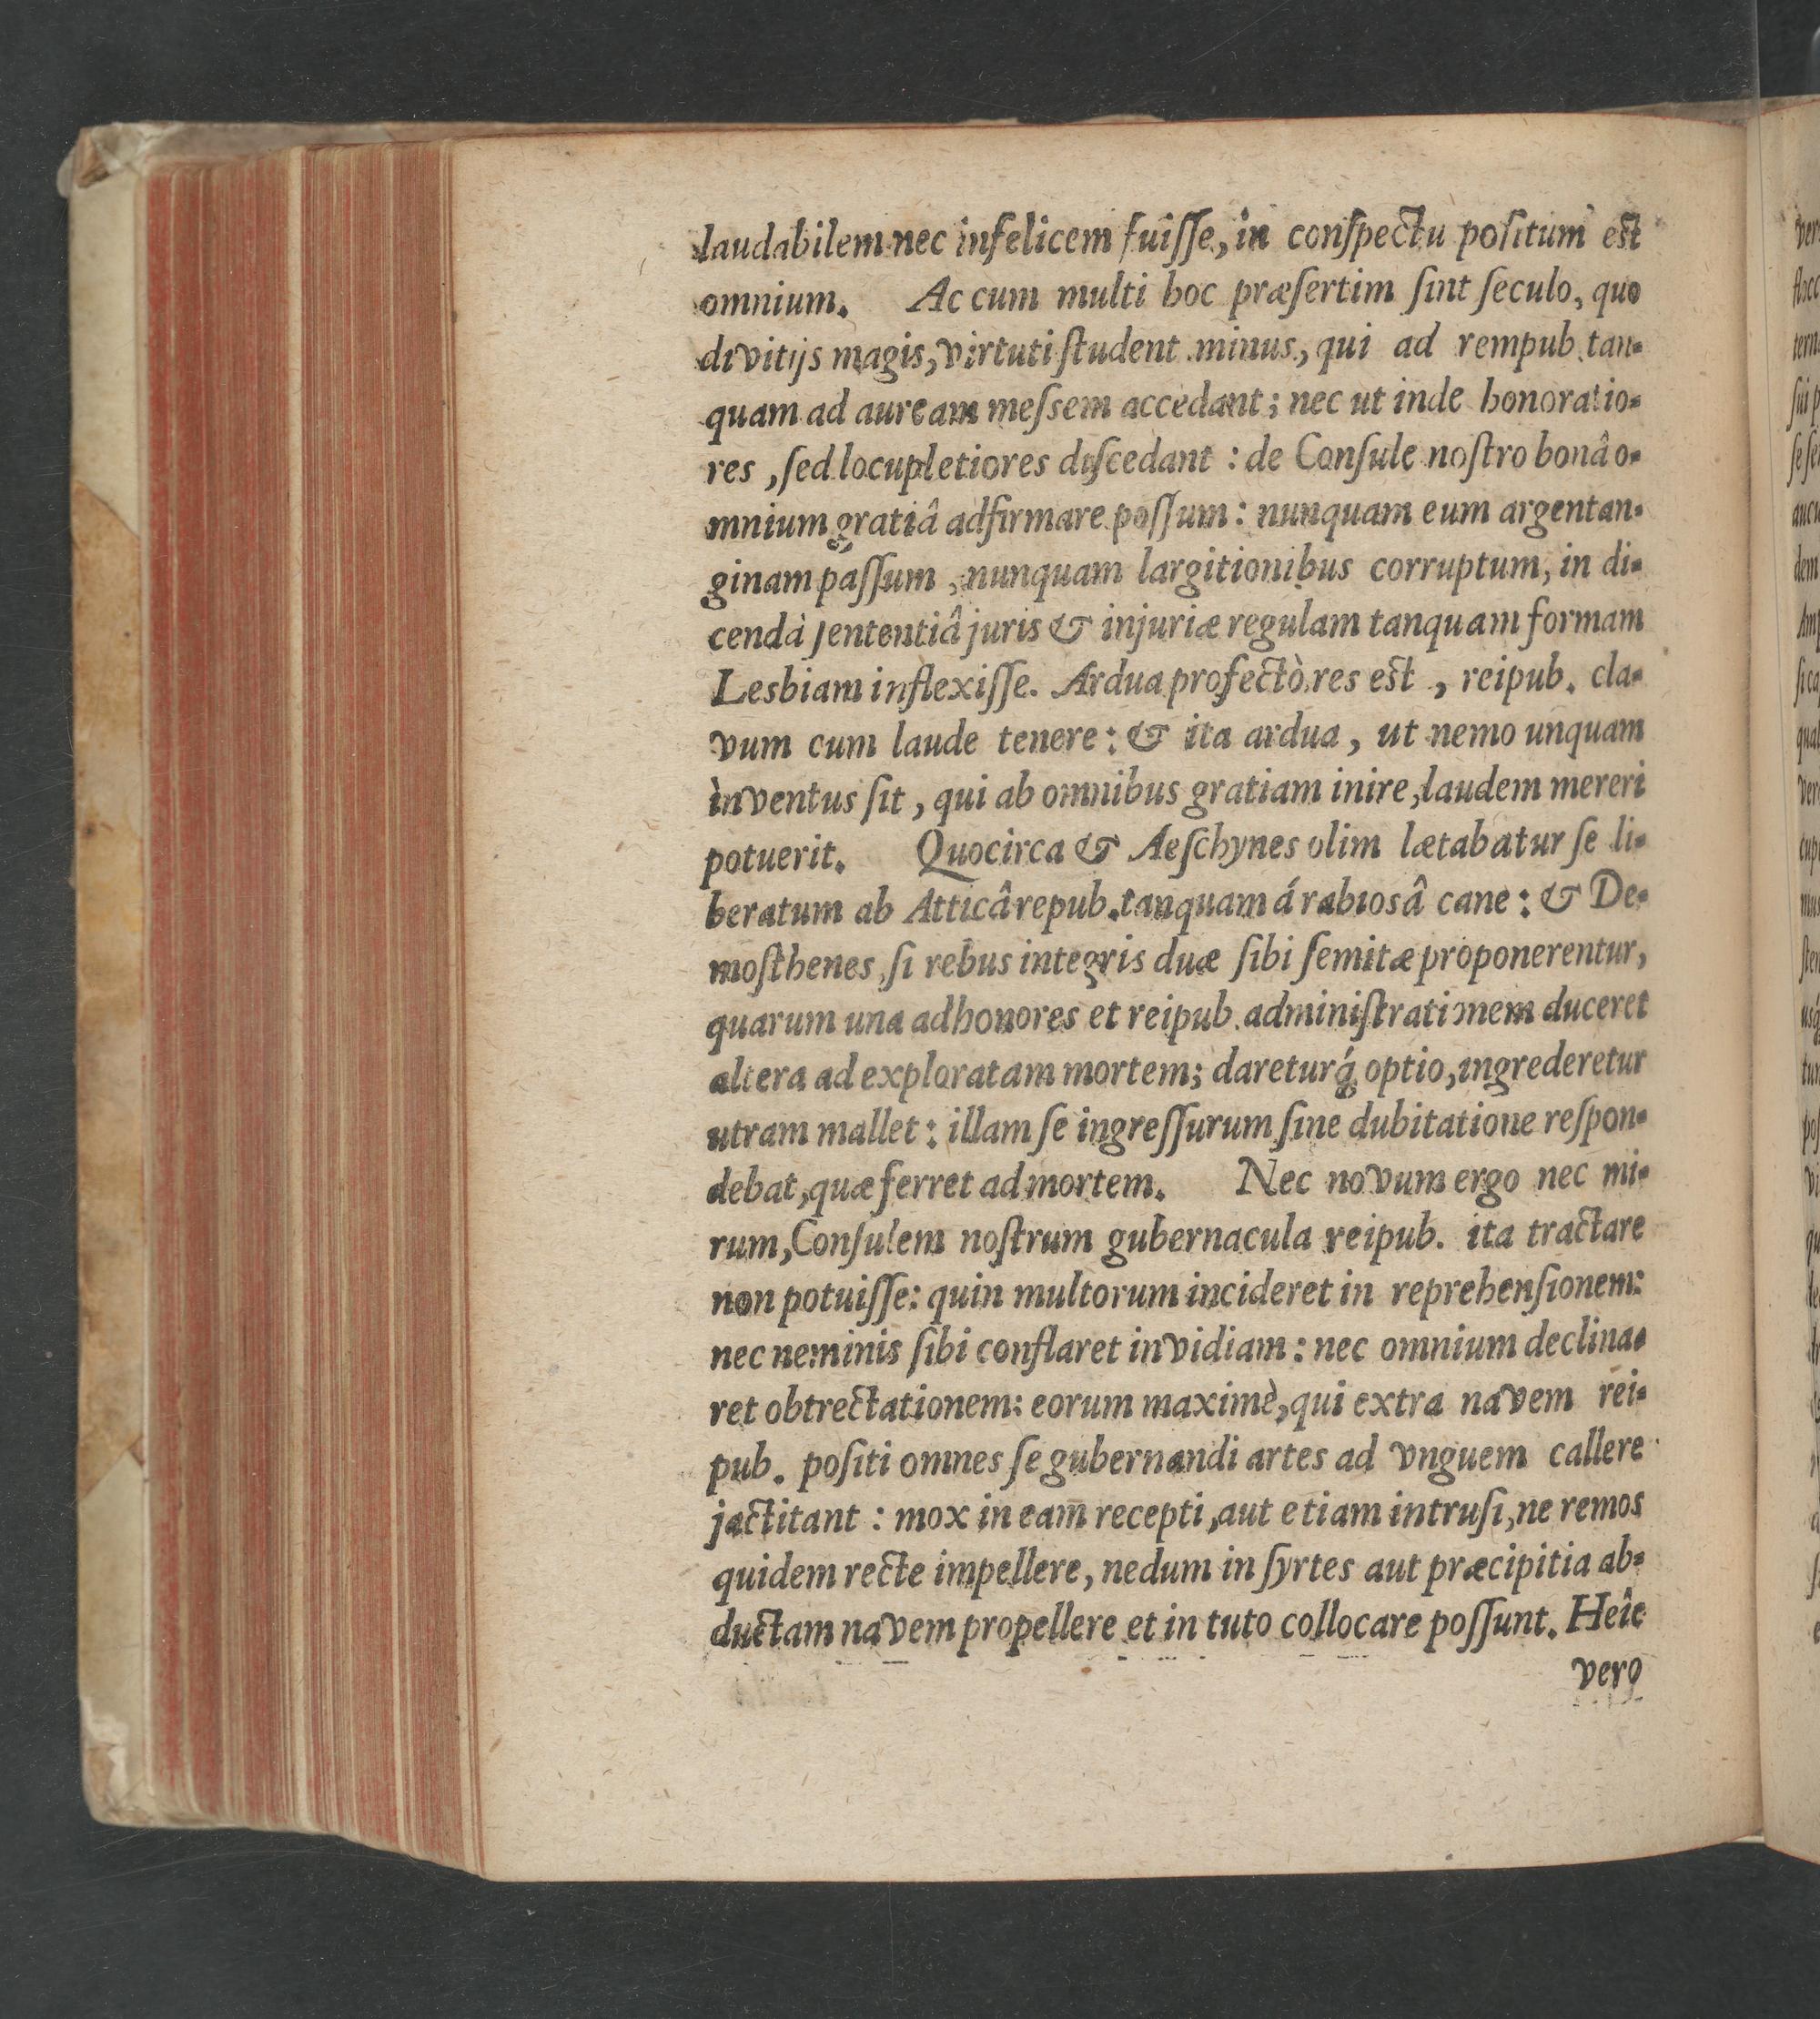 laudabilem nec infelicem fuiſſe, in conſpectu poſitum est
omnium. Ac cum multi hoc præſertim ſint ſeculo, quo
divitijs magis, virtuti ſtudent minus, qui ad rempub. tan-
quam ad auream meſsem accedant; nec ut inde honoratio-
res, ſed locupletiores diſcedant: de Conſule noſtro bonâ o-
mnium gratiâ adfirmare poſſum: nunquam eum argentan-
ginam paſſum, nunquam largitionibus corruptum, in di-
cendâ ſententiâ juris & injuriæ regulam tanquam formam
Lesbiam inflexiſſe. Ardua profectò res est, reipub. cla-
vum cum laude tenere: & ita ardua, ut nemo unquam
inventus ſit, qui ab omnibus gratiam inire, laudem mereri
potuerit. Quocirca & Aeſchynes olim lætabatur ſe li-
beratum ab Atticâ repub. tanquam á rabiosâ cane: & De-
moſthenes, ſi rebus integris duæ ſibi ſemitæ proponerentur,
quarum una ad honores et reipub. adminiſtrationem duceret
altera ad exploratam mortem; dareturq́; optio, ingrederetur
utram mallet: illam ſe ingreſſurum ſine dubitatione reſpon-
debat, quæ ferret ad mortem. Nec novum ergo nec mi-
rum, Conſulem noſtrum gubernacula reipub. ita tractare
non potuiſſe: quin multorum incideret in reprehenſionem:
nec neminis ſibi conflaret invidiam: nec omnium declina-
ret obtrectationem: eorum maximè, qui extra navem rei-
pub. poſiti omnes ſe gubernandi artes ad vnguem callere
jactitant: mox in eam recepti, aut etiam intruſi, ne remos
quidem recte impellere, nedum in ſyrtes aut præcipitia ab-
ductam navem propellere et in tuto collocare poſſunt. Heîc
vero